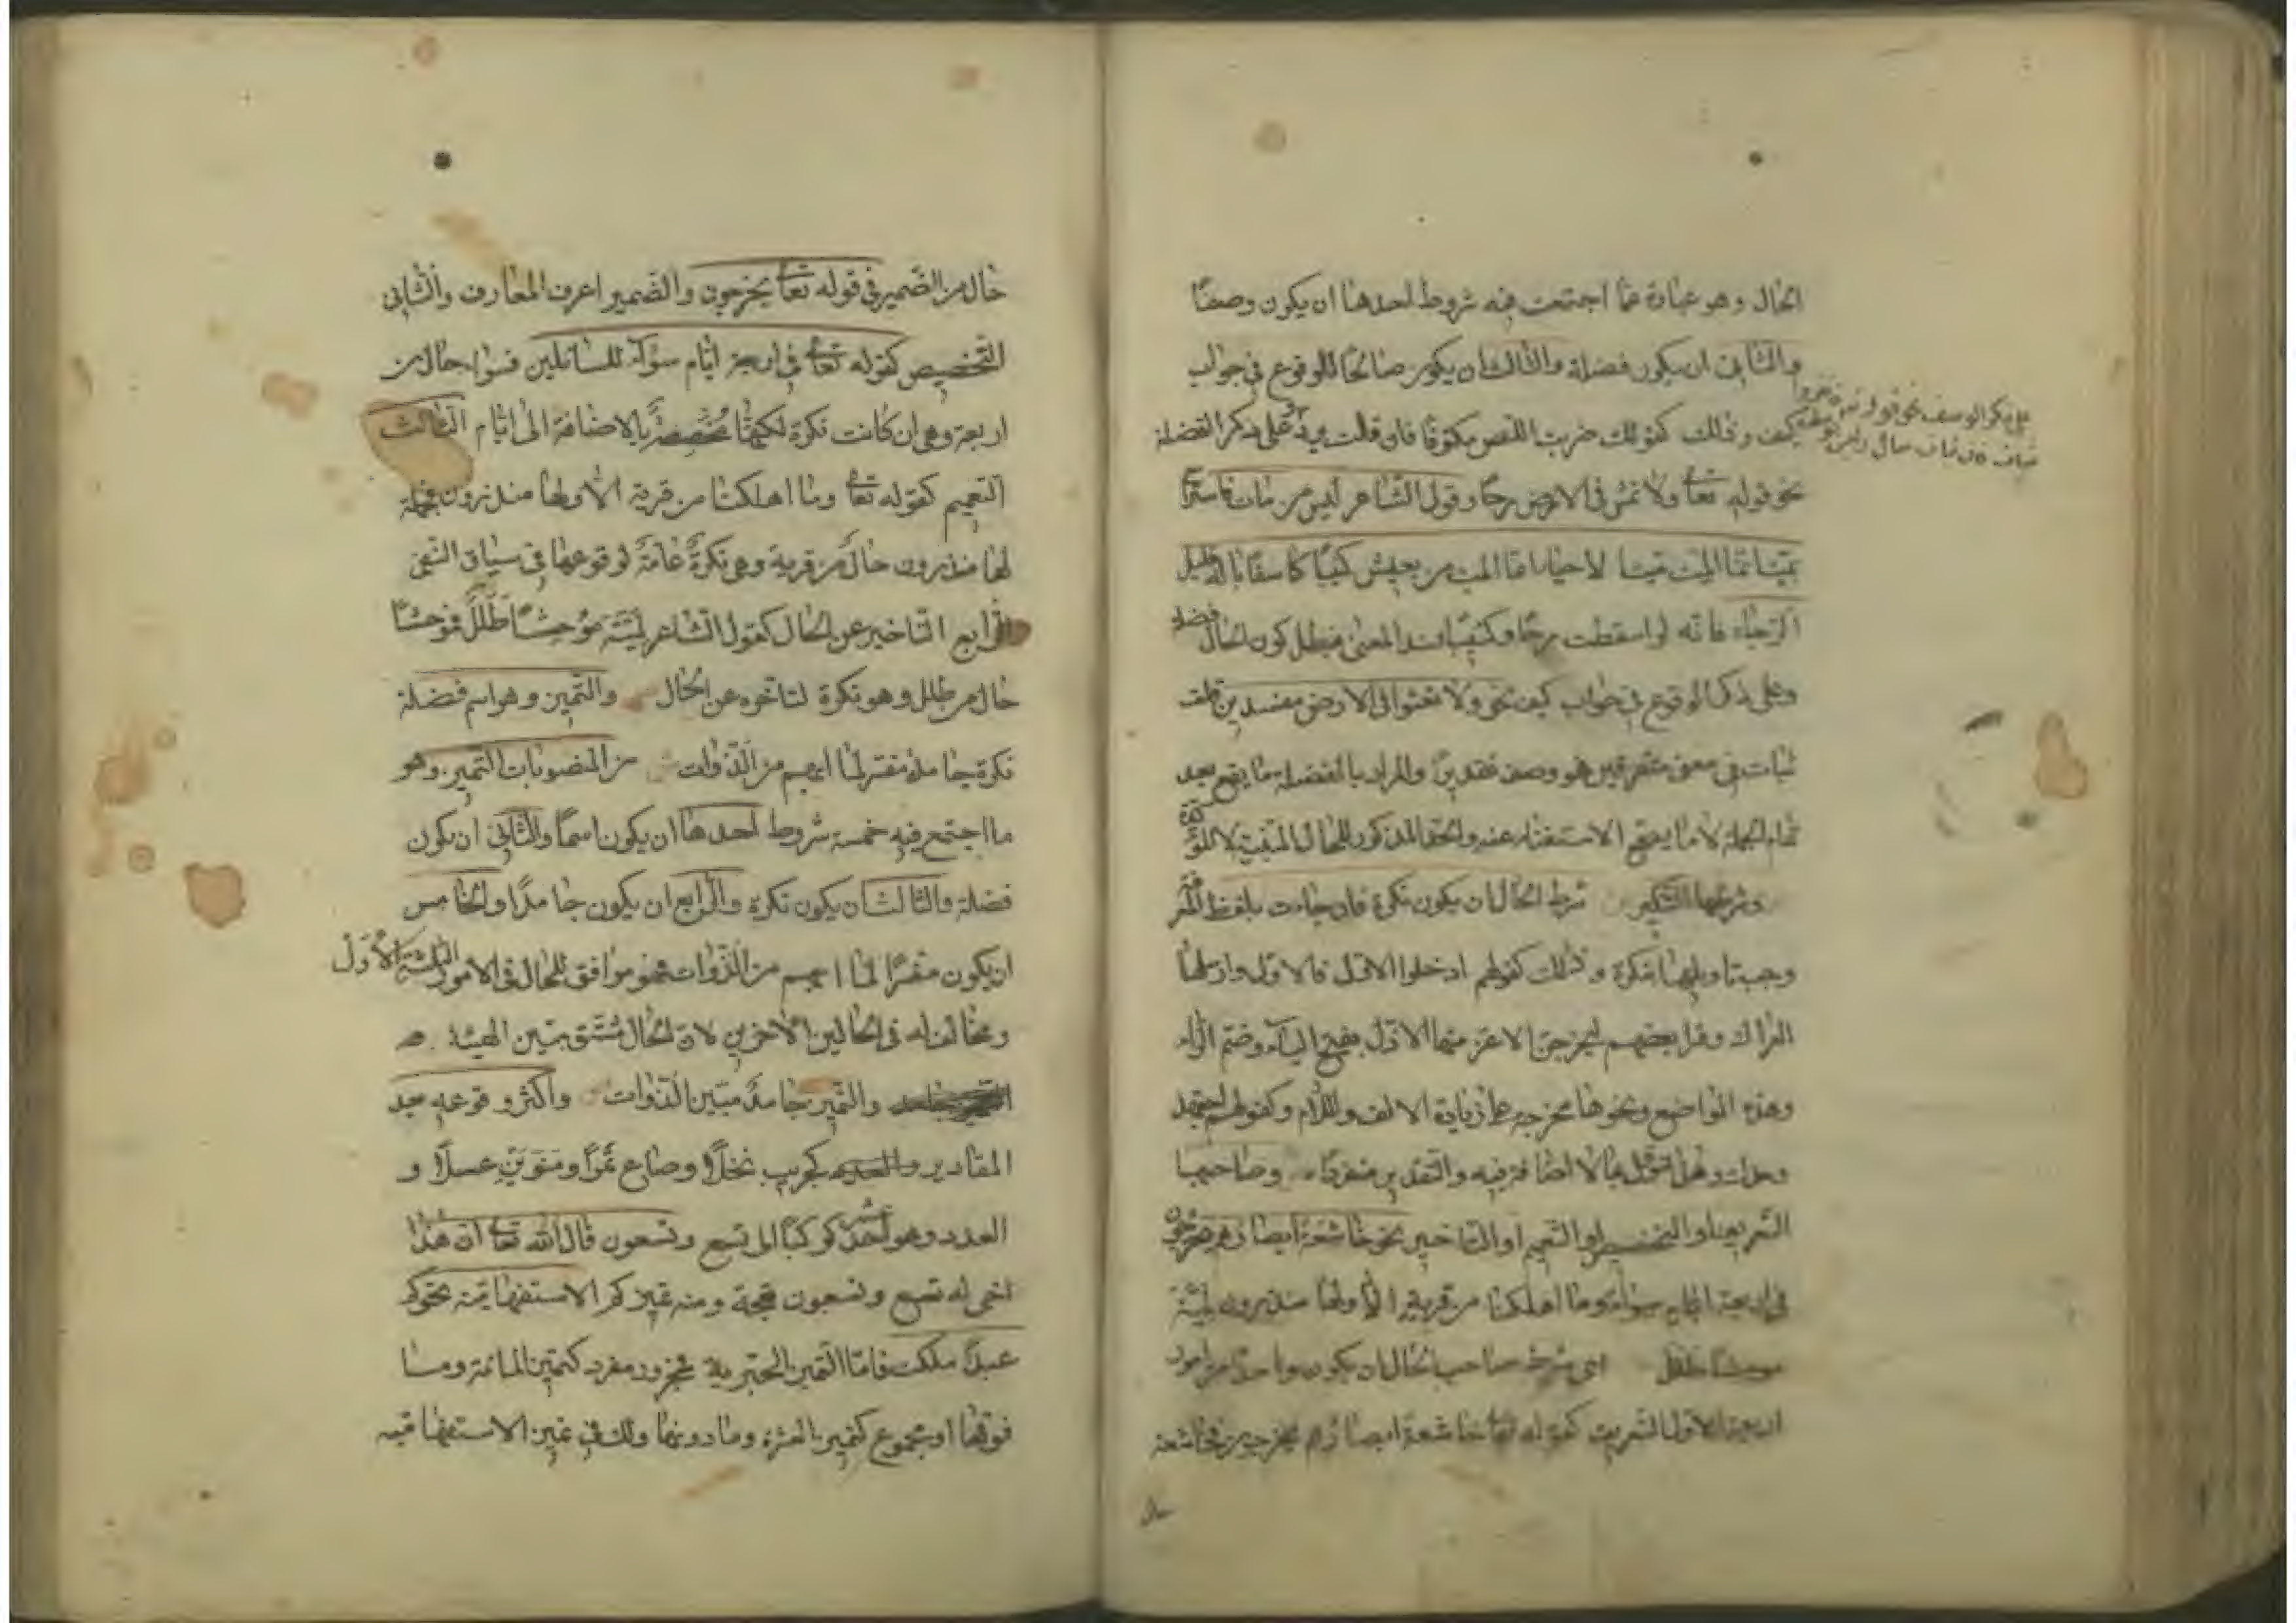 الحال وهو عبارة عما اجتمعت فيه شروط احدها ان يكون وصفًا
والثاني ان يكون فضلة والثالث ان يكون صالحًا للوقوع في جواب
كيف وذلك كقولك ضربت اللص مكتوفًا فان قلت يرد على ذكر الفضلة
على ذكر الوصف نحو قوله
نحو قوله تعا ولا تمش في الارض مرحًا وقول الشاعر ليس من مات فاستراح
بميت انما الميت ميت الاحياء انما الميت من يعيش كئيبًا كاسفًا باله قليل
الرجاء فانه لو اسقطت مرحًا وكئيبًا فسد المعنى فبطل كون الحال فضلة
وعلى ذكر الوقوع في جواب كيف نحو ولا تعثوا في الارض مفسدين قلت
ثبات في معنى متفرقين هو وصف تقديرًا والمراد بالفضلة ما يقع بعد
تمام الجملة لا ما يصح الاستغناء عنه والحد المذكور للحال المبينة لا المؤكدة
وشرطها التنكير شرط الحال ان يكون نكرة فان جاءت بلفظ المعرفة
وجب تاويلها بنكرة وذلك كقولهم ادخلوا الاول فالاول وارسلها
العراك وقرا بعضهم ليخرجن الاعز منها الاذل بفتح الياء وضم الراء
وهذه المواضع ونحوها مخرجة على زيادة الالف واللام وكقولهم اجتهد
وحدك وهذا مؤول بما لا اضافة فيه والتقدير منفردًا وصاحبها
التعريف او التخصيص او التعميم او التاخير نحو خاشعة ابصارهم يخرجون
في اربعة ايام سواء وما اهلكنا من قرية الا ولها منذرون لمية
موحشًا طلل اى شرط صاحب الحال ان يكون واحدًا من امور
اربعة الاول التعريف كقوله تعا خاشعة ابصارهم يخرجون فخاشعة
حال من الضمير في قوله تعا يخرجون والضمير اعرف المعارف والثاني
التخصيص كقوله تعا في اربعة ايام سوآء للسائلين فسواء حال من
اربعة وهى ان كانت نكرة لكنها مخصصة بالاضافة الى ايام الثالث
التعميم كقوله تعا وما اهلكنا من قرية الا ولها منذرون فجملة
لها منذرون حال من قرية وهى نكرة عامة لوقوعها في سياق النفى
الرابع التاخير عن الحال كقول الشاعر لمية موحشًا طلل فموحشًا
حال من طلل وهو نكرة لتاخره عن الحال والتميز وهو اسم فضلة
نكرة جامد مفسر لما ابهم من الذوات من المنصوبات التميز وهو
ما اجتمع فيه خمسة شروط احدها ان يكون اسمًا والثاني ان يكون
فضلة والثالث ان يكون نكرة والرابع ان يكون جامدًا والخامس
ان يكون مفسرًا لما ابهم من الذوات فهو موافق للحال في الامور الثلثة الأوَل
ومخالف له في الحالين الأخرين لان الحال مشتق مبين الهيئة
والتميز جامد مبين الذوات واكثر وقوعه بعد
المقادير كجريب نخلًا وصاع تمرًا ومنوين عسلًا و
العدد وهو احد عشر كوكبًا الى تسع وتسعون قال الله تعا ان هذا
اخى له تسع وتسعون نعجة ومنه تميز كم الاستفهامية نحو كم
عبدًا ملكت فاما التميز الخبرية فمجرور مفرد كتميز المائة وما
فوقها او مجموع كتميز العشرة وما دونها ولك في تميز الاستفهامية